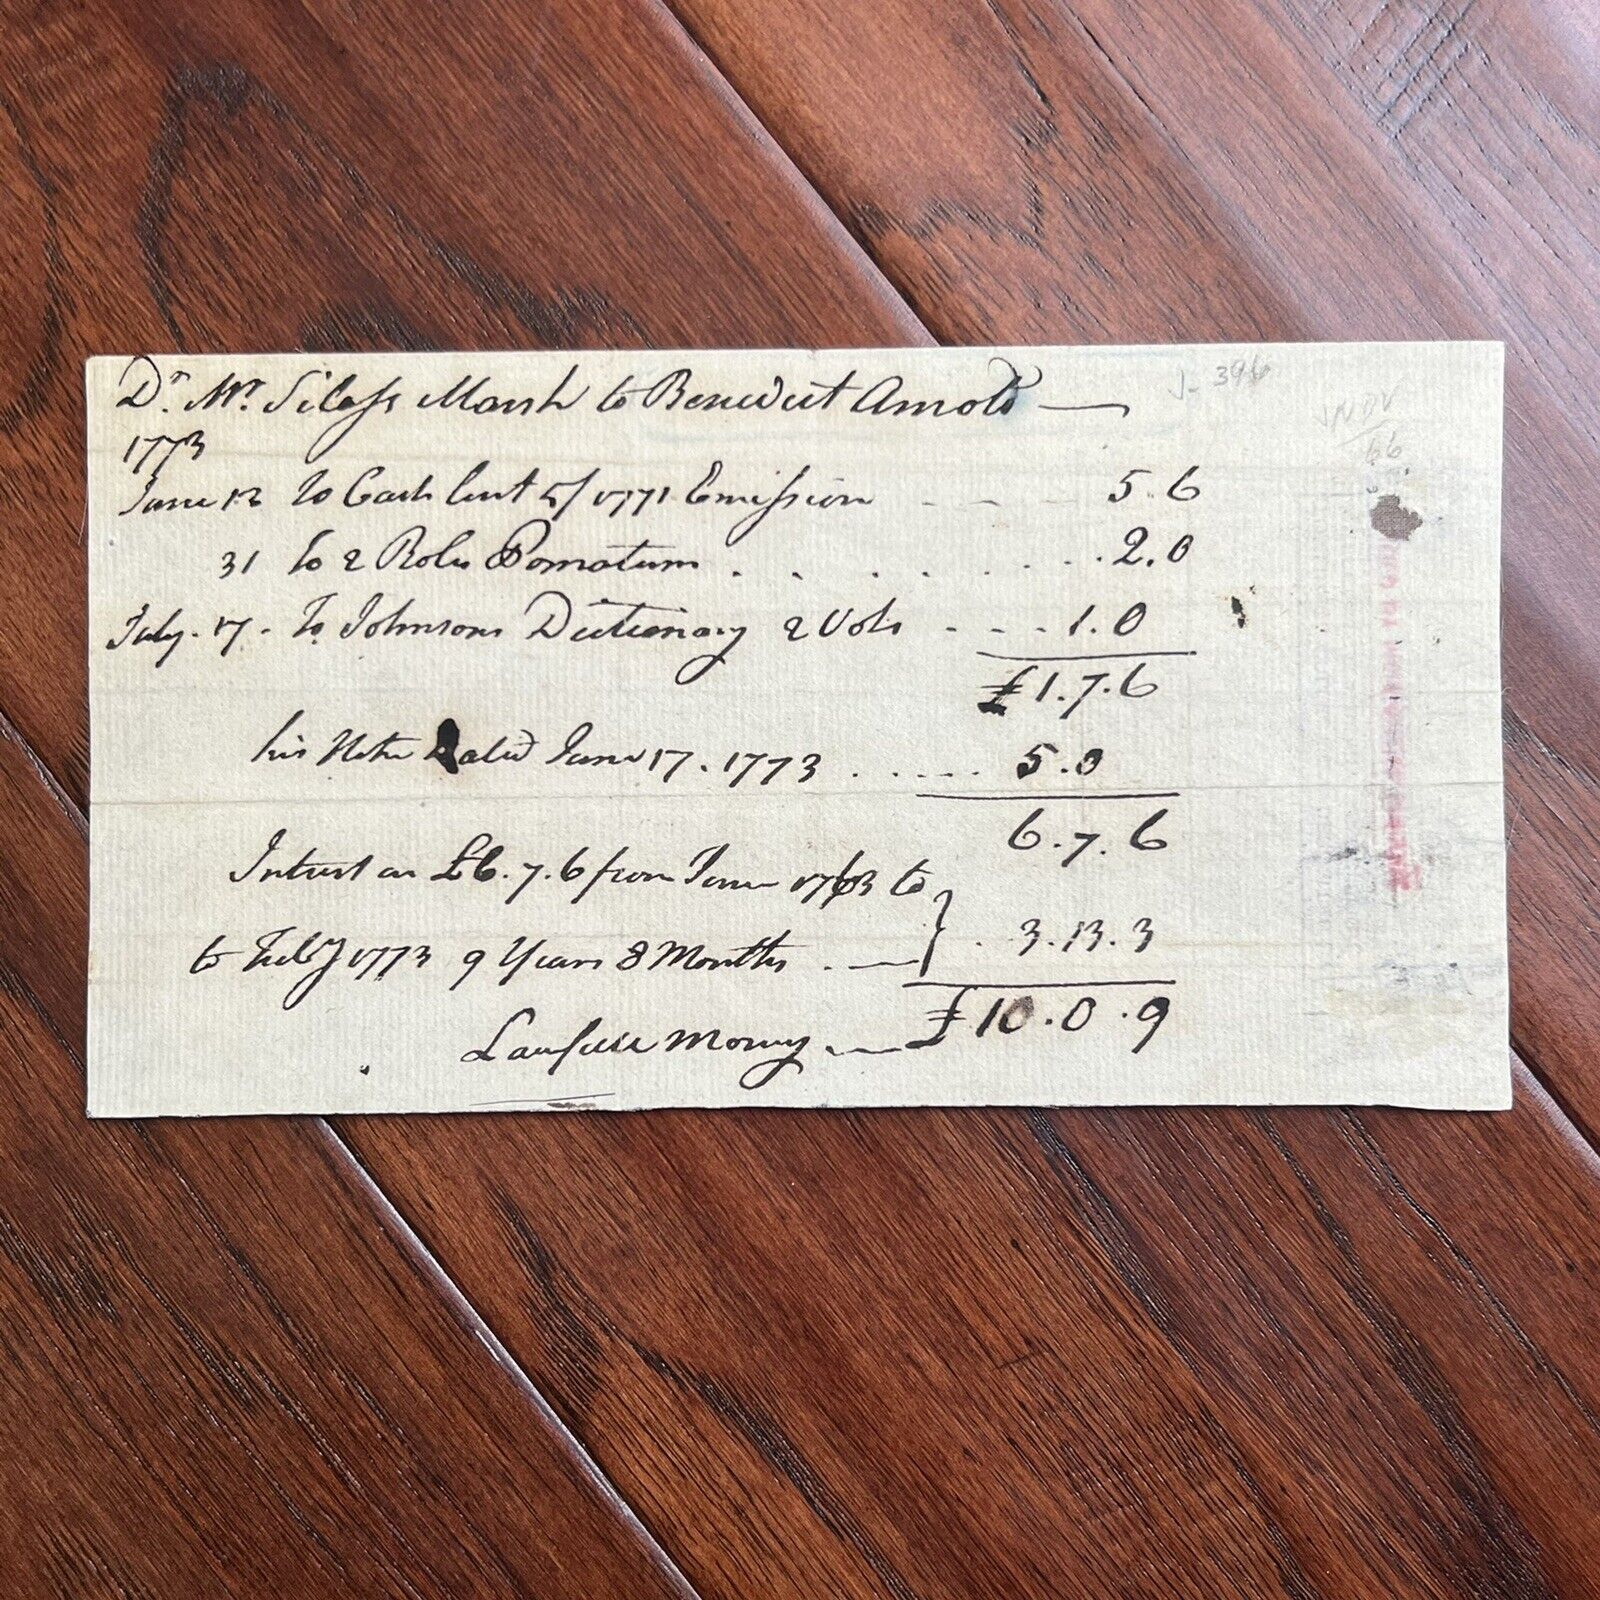 Dr. Mr. Silass Marsh to Benedict Arnold
J- 396
1773
66
June 12 To Cash lent 5/ 1771 Emission - - - 5.6
31 to 2 Rolls Pomatum . . . . . . . . . 2.0
July. 17. To Johnsons Dictionary 2 Vols - - - 1.0
£1.7.6
his Note Dated June 17. 1773 . . . . . 5.0
6.7.6
Interest on £6.7.6 from June 1763 to
to Feby 1773 9 Years 8 Months . — } . 3.13.3
Lawfull Money . — £10.0.9